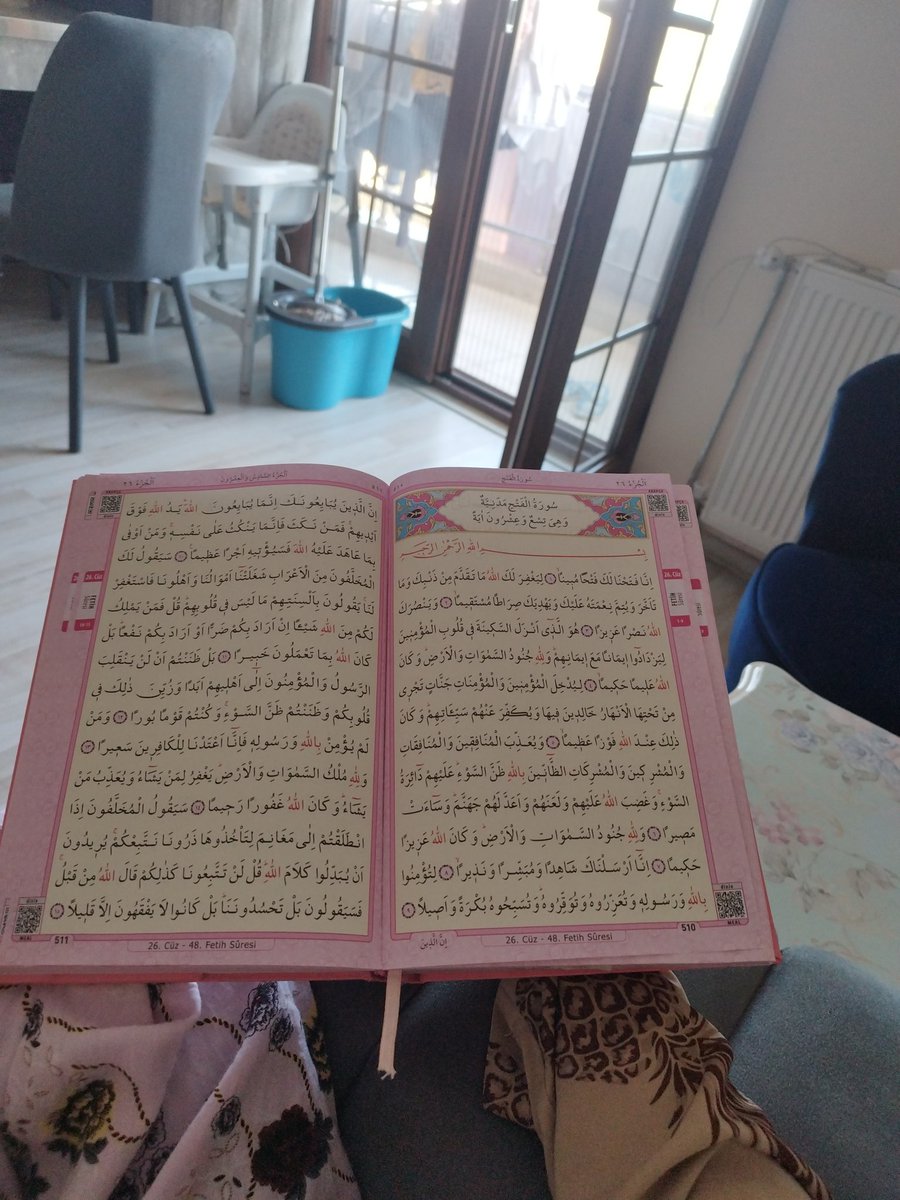 الجزء ٢٦
سورة الفتح
٥١٠
سُورَةُ الْفَتْحِ مَدَنِيَّةٌ
وَهِيَ تِسْعٌ وَعِشْرُونَ اٰيَةً
بِسْمِ اللهِ الرَّحْمٰنِ الرَّحِيمِ
اِنَّا فَتَحْنَا لَكَ فَتْحًا مُبِينًا ١ لِيَغْفِرَ لَكَ اللهُ مَا تَقَدَّمَ مِنْ ذَنْبِكَ وَمَا
تَاَخَّرَ وَيُتِمَّ نِعْمَتَهُ عَلَيْكَ وَيَهْدِيَكَ صِرَاطًا مُسْتَقِيمًا ٢ وَيَنْصُرَكَ
اللهُ نَصْرًا عَزِيزًا ٣ هُوَ الَّذِٓي اَنْزَلَ السَّكِينَةَ فِي قُلُوبِ الْمُؤْمِنِينَ
لِيَزْدَادُٓوا اِيمَانًا مَعَ اِيمَانِهِمْ وَلِلهِ جُنُودُ السَّمٰوَاتِ وَالْاَرْضِ وَكَانَ
اللهُ عَلِيمًا حَكِيمًا ٤ لِيُدْخِلَ الْمُؤْمِنِينَ وَالْمُؤْمِنَاتِ جَنَّاتٍ تَجْرِي
مِنْ تَحْتِهَا الْاَنْهَارُ خَالِدِينَ فِيهَا وَيُكَفِّرَ عَنْهُمْ سَيِّـَٔاتِهِمْ وَكَانَ
ذٰلِكَ عِنْدَ اللهِ فَوْزًا عَظِيمًا ٥ وَيُعَذِّبَ الْمُنَافِقِينَ وَالْمُنَافِقَاتِ
وَالْمُشْرِكِينَ وَالْمُشْرِكَاتِ الظَّٓانِّينَ بِاللهِ ظَنَّ السَّوْءِ عَلَيْهِمْ دَٓائِرَةُ
السَّوْءِ وَغَضِبَ اللهُ عَلَيْهِمْ وَلَعَنَهُمْ وَاَعَدَّ لَهُمْ جَهَنَّمَ وَسَٓاءَتْ
مَصِيرًا ٦ وَلِلهِ جُنُودُ السَّمٰوَاتِ وَالْاَرْضِ وَكَانَ اللهُ عَزِيزًا
حَكِيمًا ٧ اِنَّٓا اَرْسَلْنَاكَ شَاهِدًا وَمُبَشِّرًا وَنَذِيرًا ٨ لِتُؤْمِنُوا
بِاللهِ وَرَسُولِهِ وَتُعَزِّرُوهُ وَتُوَقِّرُوهُ وَتُسَبِّحُوهُ بُكْرَةً وَاَصِيلًا ٩
اِنَّ الَّذِينَ
26. Cüz - 48. Fetih Sûresi
510
26. Cüz
FETİH
MEAL
الجزء ٢٦
الجزء السادس والعشرون
اِنَّ الَّذِينَ يُبَايِعُونَكَ اِنَّمَا يُبَايِعُونَ اللهَ يَدُ اللهِ فَوْقَ
اَيْدِيهِمْ فَمَنْ نَكَثَ فَاِنَّمَا يَنْكُثُ عَلٰى نَفْسِهِ وَمَنْ اَوْفٰى
بِمَا عَاهَدَ عَلَيْهُ اللهَ فَسَيُؤْتِيهِ اَجْرًا عَظِيمًا ١٠ سَيَقُولُ لَكَ
الْمُخَلَّفُونَ مِنَ الْاَعْرَابِ شَغَلَتْنَٓا اَمْوَالُنَا وَاَهْلُونَا فَاسْتَغْفِرْ
لَنَا يَقُولُونَ بِاَلْسِنَتِهِمْ مَا لَيْسَ فِي قُلُوبِهِمْ قُلْ فَمَنْ يَمْلِكُ
لَكُمْ مِنَ اللهِ شَيْـًٔا اِنْ اَرَادَ بِكُمْ ضَرًّا اَوْ اَرَادَ بِكُمْ نَفْعًا بَلْ
كَانَ اللهُ بِمَا تَعْمَلُونَ خَبِيرًا ١١ بَلْ ظَنَنْتُمْ اَنْ لَنْ يَنْقَلِبَ
الرَّسُولُ وَالْمُؤْمِنُونَ اِلٰٓى اَهْلِيهِمْ اَبَدًا وَزُيِّنَ ذٰلِكَ فِي
قُلُوبِكُمْ وَظَنَنْتُمْ ظَنَّ السَّوْءِ وَكُنْتُمْ قَوْمًا بُورًا ١٢ وَمَنْ
لَمْ يُؤْمِنْ بِاللهِ وَرَسُولِهِ فَاِنَّٓا اَعْتَدْنَا لِلْكَافِرِينَ سَعِيرًا ١٣
وَلِلهِ مُلْكُ السَّمٰوَاتِ وَالْاَرْضِ يَغْفِرُ لِمَنْ يَشَٓاءُ وَيُعَذِّبُ مَنْ
يَشَٓاءُ وَكَانَ اللهُ غَفُورًا رَحِيمًا ١٤ سَيَقُولُ الْمُخَلَّفُونَ اِذَا
انْطَلَقْتُمْ اِلٰى مَغَانِمَ لِتَأْخُذُوهَا ذَرُونَا نَتَّبِعْكُمْ يُرِيدُونَ
اَنْ يُبَدِّلُوا كَلَامَ اللهِ قُلْ لَنْ تَتَّبِعُونَا كَذٰلِكُمْ قَالَ اللهُ مِنْ قَبْلُ
فَسَيَقُولُونَ بَلْ تَحْسُدُونَنَا بَلْ كَانُوا لَا يَفْقَهُونَ اِلَّا قَلِيلًا ١٥
26. Cüz - 48. Fetih Sûresi
511
26. Cüz
FETİH
MEAL